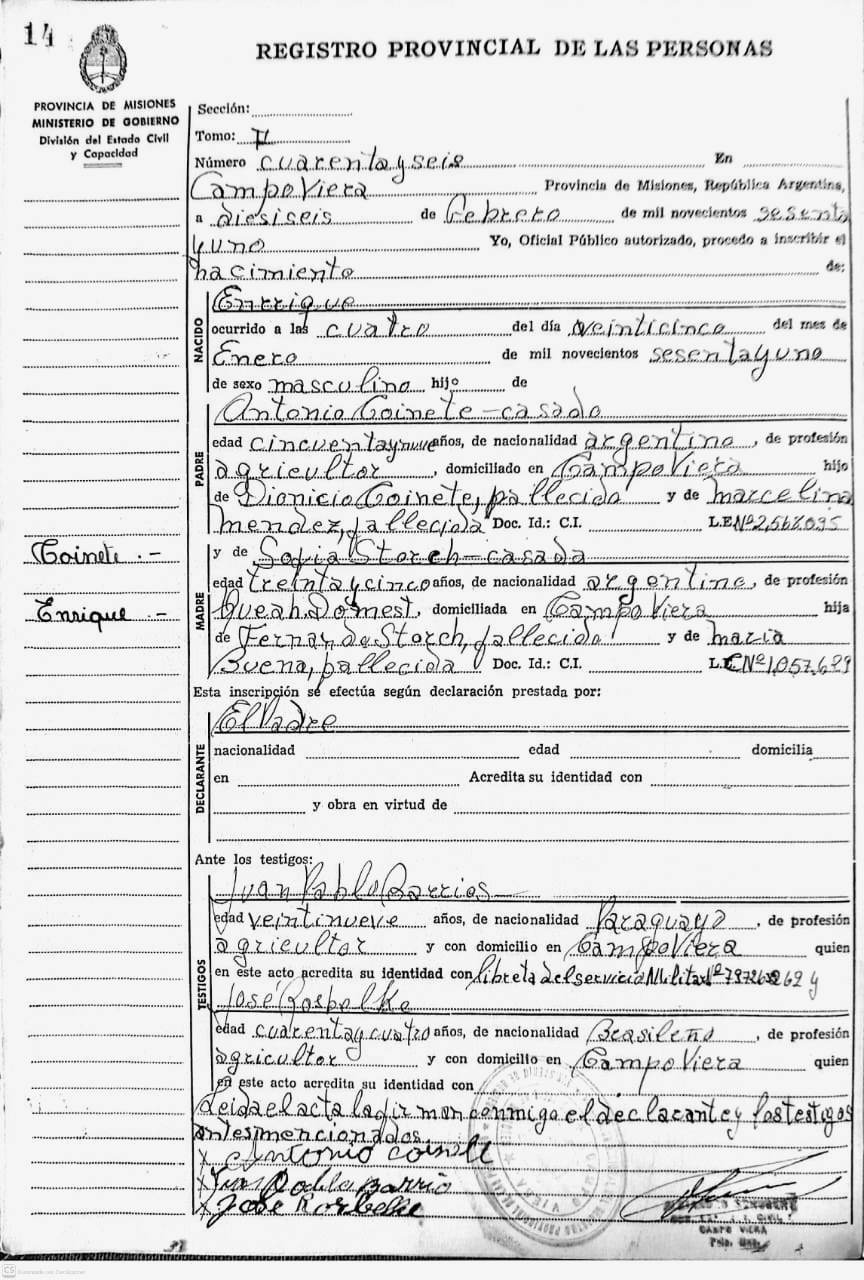 14
REGISTRO PROVINCIAL DE LAS PERSONAS
PROVINCIA DE MISIONES
MINISTERIO DE GOBIERNO
División del Estado Civil
y Capacidad
Sección:
Tomo: II
Número cuarentayseis En
Campo Viera Provincia de Misiones, República Argentina,
a diesiseis de Febrero de mil novecientos sesenta
y uno Yo, Oficial Público autorizado, procedo a inscribir el
nacimiento de:
NACIDO
Enrrique
ocurrido a las cuatro del día veinticinco del mes de
Enero de mil novecientos sesenta y uno
de sexo masculino hijo de
PADRE
Antonio Coinete - casado
edad cincuentaynueve años, de nacionalidad argentino, de profesión
agricultor, domiciliado en Campo Viera hijo
de Dionicio Coinete, fallecido y de marcelina
mendez, fallecida Doc. Id.: C.I. L.E. Nº 2,567.035
Coinete . -
Enrique . -
MADRE
y de Sofia Storch - casada
edad treinta y cinco años, de nacionalidad argentina, de profesión
Queah. Domest, domiciliada en Campo Viera hija
de Fernando Storch, fallecido y de maria
Buena, fallecida Doc. Id.: C.I. L.C Nº 1,057,629
Esta inscripción se efectúa según declaración prestada por:
DECLARANTE
El Padre
nacionalidad edad domicilia
en Acredita su identidad con
y obra en virtud de
Ante los testigos:
TESTIGOS
Juan Pablo Barrios -
edad veintinueve años, de nacionalidad Paraguayo, de profesión
agricultor y con domicilio en Campo Viera quien
en este acto acredita su identidad con libreta del servicio Militar Nº y
José
edad cuarenta y cuatro años, de nacionalidad Brasileño, de profesión
agricultor y con domicilio en Campo Viera quien
en este acto acredita su identidad con
Leida el acta la firman conmigo el declarante y los testigos
antes mencionados.
x Antonio
x Juan Pablo Barrio
x José
CAMPO VIERA
CS